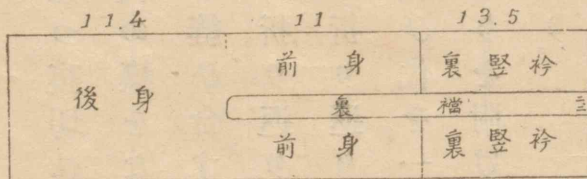 11.4 11 13.5
前身 裏竪衿
後身 裏襠
前身 裏竪衿